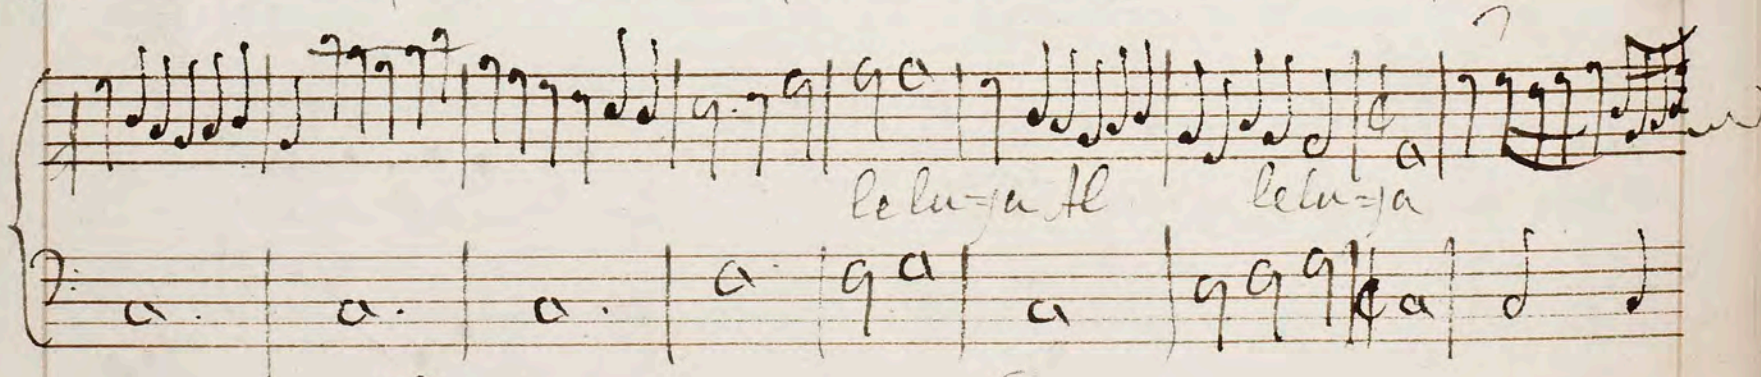 lelu=ja Al lelu=ja